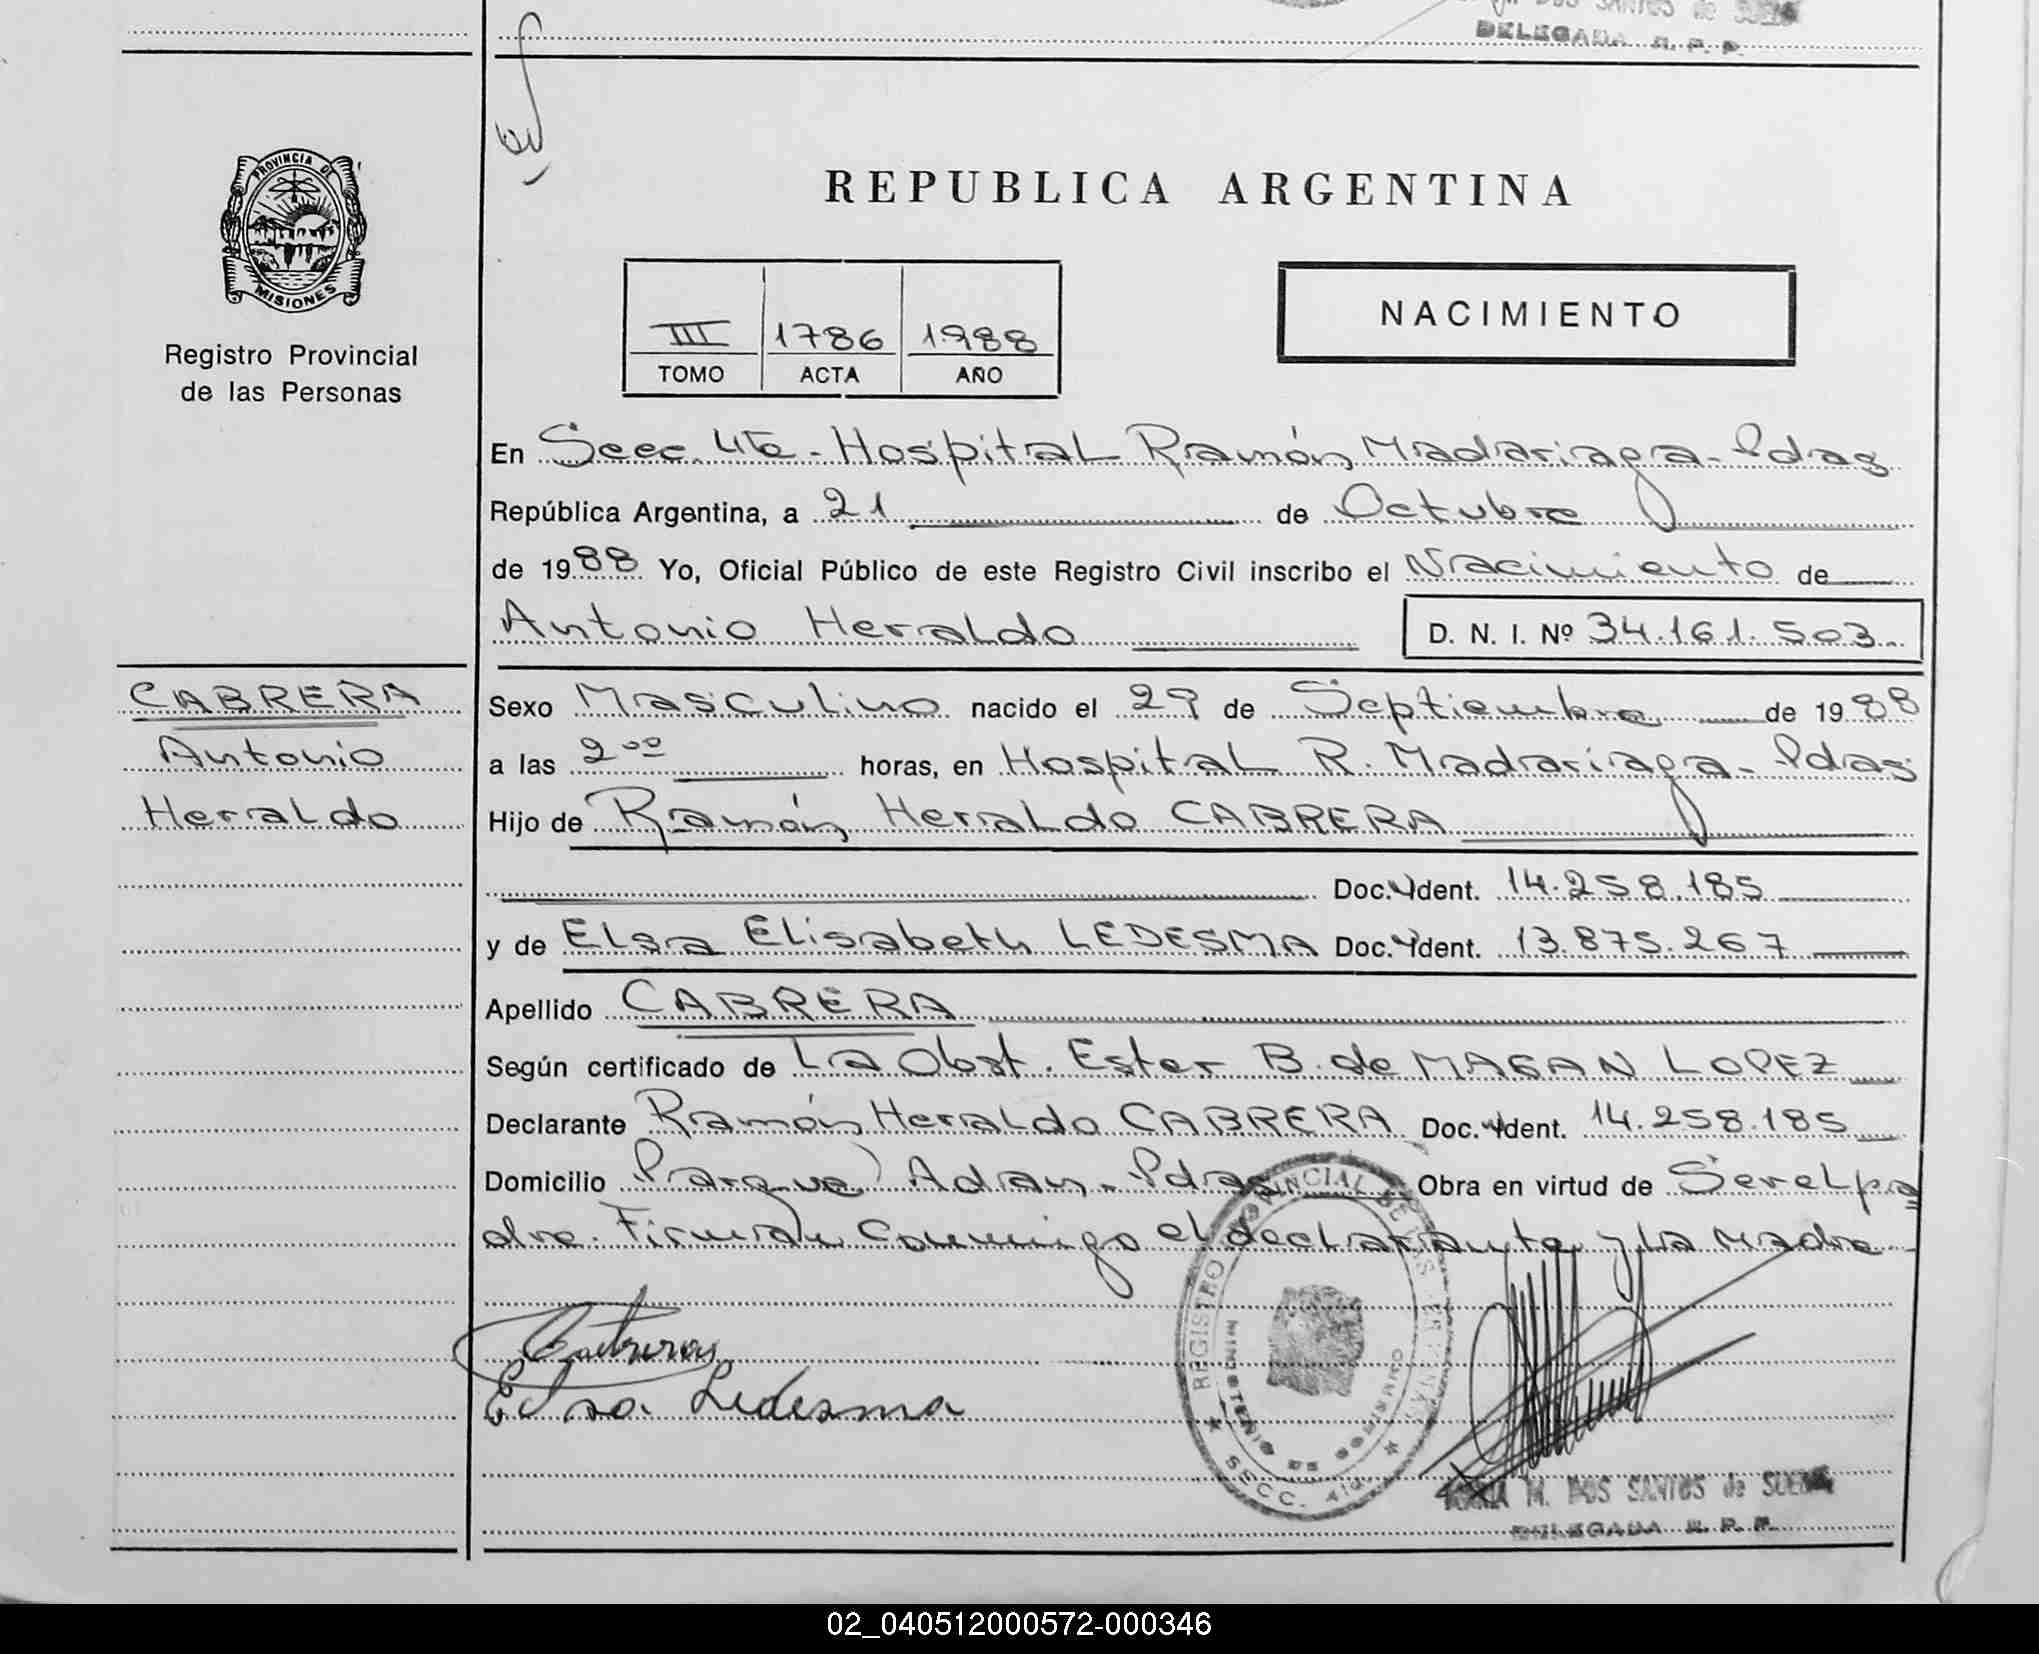 DELEGADA R. P. P.
PROVINCIA DE
MISIONES
Registro Provincial
de las Personas
REPUBLICA ARGENTINA
NACIMIENTO
III 1786 1988
TOMO ACTA AÑO
En Secc. 4ta - Hospital Ramón Madariaga - Pdas
República Argentina, a 21 de Octubre
de 1988 Yo, Oficial Público de este Registro Civil inscribo el Nacimiento de
Antonio Heraldo D. N. I. Nº 34.161.503
CABRERA
Antonio
Heraldo
Sexo Masculino nacido el 29 de Septiembre de 1988
a las 2 00 horas, en Hospital R. Madariaga - Pdas
Hijo de Ramón Heraldo CABRERA
Doc. Ident. 14.258.185
y de Elsa Elisabeth LEDESMA Doc. Ident. 13.875.267
Apellido CABRERA
Según certificado de La Obst. Ester B. de MAGAN LOPEZ
Declarante Ramón Heraldo CABRERA Doc. Ident. 14.258.185
Domicilio Parque Adam - Pdas Obra en virtud de Ser el pa
dre. Firman Conmigo el declarante y la Madre
Elsa Ledesma
REGISTRO PROVINCIAL DE LAS PERSONAS
MINISTERIO DE GOBIERNO
SECC. 4ta
M. DOS SANTOS de
DELEGADA R. P. P.
02_040512000572-000346